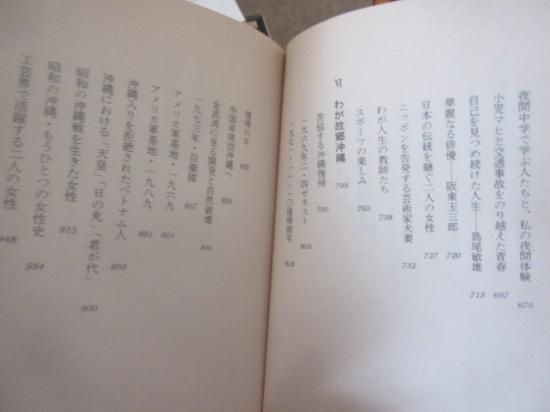 夜間中学で学ぶ人たちと、私の夜間体験 675
小児マヒと交通事故をのり越えた青春 697
自己を見つめ続けた人生——島尾敏雄 713
華麗なる俳優——阪東玉三郎 720
日本の伝統を継ぐ二人の女性 727
ニッポンを告発する芸術家夫妻 732
わが人生の教師たち 738
スポーツの楽しみ 765
Ⅵ わが故郷沖縄 793
苦悩する沖縄復帰 795
一九六九年二・四ゼネスト
一九七一・一一・一〇復帰前年
復帰の日
中国卓球団沖縄へ
金武湾に見る開発と自然破壊 844
一九七三年・自衛隊 857
アメリカ軍基地・一九六九 864
アメリカ軍基地・一九八九 881
沖縄入りを拒絶されたベトナム人 893
沖縄における「天皇」「日の丸」「君が代」 900
昭和の沖縄戦を生きた女性 915
昭和の沖縄・もうひとつの女性史 934
工芸界で活躍する二人の女性 948